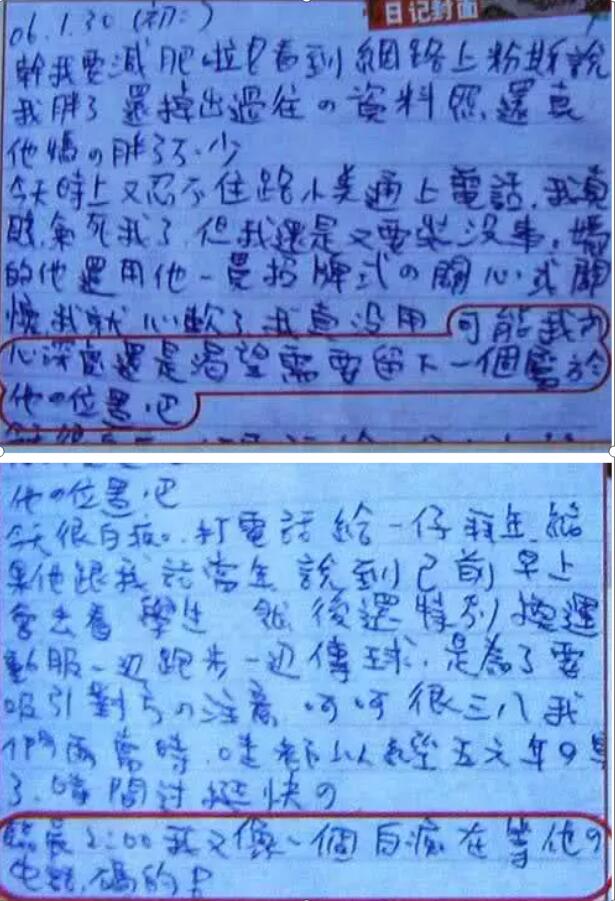 日记封面
06.1.30(初二)
幹我要減肥啦!看到網路上粉斯說
我胖了 還摟出過往の資料照,還真
他媽の胖了不少
今天時上又忍不住跟小美通上電話,我真
氣死我了,但我還是又要裝沒事,媽
的他還用他一貫招牌式の關心或關
懷我就心軟了,我真沒用 可能我內
心深處還是渴望需要留下一個屬於
他の位置吧
他の位置吧
今天很白痴..打電話給一仔拜年,結
果他跟我話當年 說到已前早上
會去看 學生 然後還特別換運
動服一边跑步一边傳球,是為了要
吸引對方の注意,呵呵很三八我
們兩當時
了,時間过挺快の
臨晨2:00我又像一個白痴在等他の
电話,碼的!